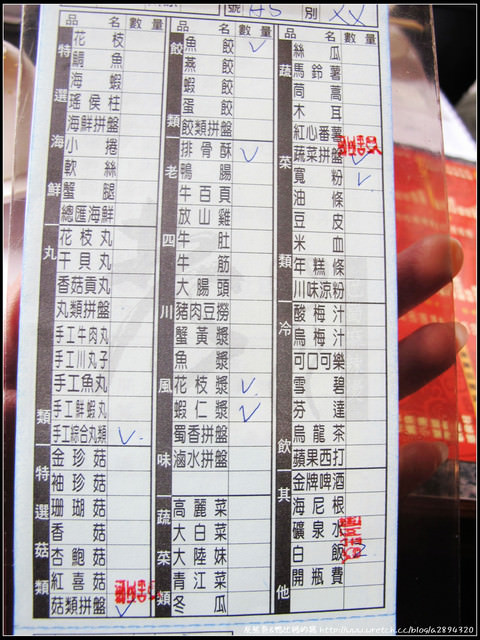 號 A5 別 XX
品名 數量
特選海鮮
花枝
鯛魚
海蝦
瑤侯柱
海鮮拼盤
小捲
軟絲
蟹腿
總匯海鮮
丸類
花枝丸
干貝丸
香菇貢丸
丸類拼盤
手工牛肉丸
手工川丸子
手工魚丸
手工鮮蝦丸
手工綜合丸類
特選菇類
金珍菇
袖珍菇
珊瑚菇
香菇
杏鮑菇
紅喜菇
菇類拼盤
品名 數量
餃類
魚餃
燕餃
蝦餃
蛋餃
餃類拼盤
老四川風味
排骨酥
鴨腸
牛百頁
放山雞
牛肚
牛筋
大腸頭
豬肉豆撈
蟹黃漿
魚漿
花枝漿
蝦仁漿
蜀香拼盤
滷水拼盤
蔬菜類
高麗菜
大白菜
大陸妹
青江菜
冬瓜
品名 數量
蔬菜類
絲瓜
馬鈴薯
茼蒿
木耳
紅心番薯
蔬菜拼盤
寬粉
油條
豆皮
米血
年糕條
川味涼粉
冷飲
酸梅汁
烏梅汁
可口可樂
雪碧
芬達
烏龍茶
蘋果西打
其他
金牌啤酒
海尼根
礦泉水
白飯 2
開瓶費
http://www.wretch.cc/blog/a2894320